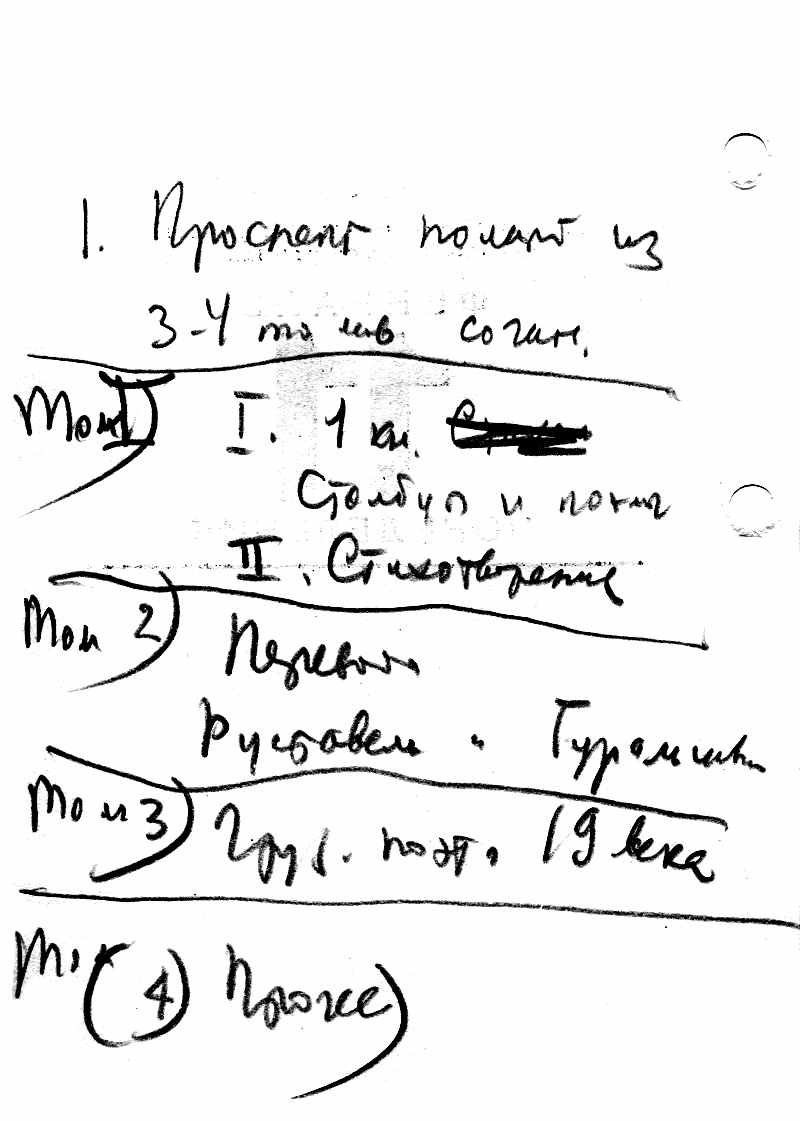 1. Проспект полагт из
3-4 томов сочин.
Том I) I. 1 кн.
Столбцы и поэмы
II. Стихотворение
Том 2) Переводы
Руставели и Гурамишв.
Том 3) Груз. поэты 19 века
Том (4) Прочее)